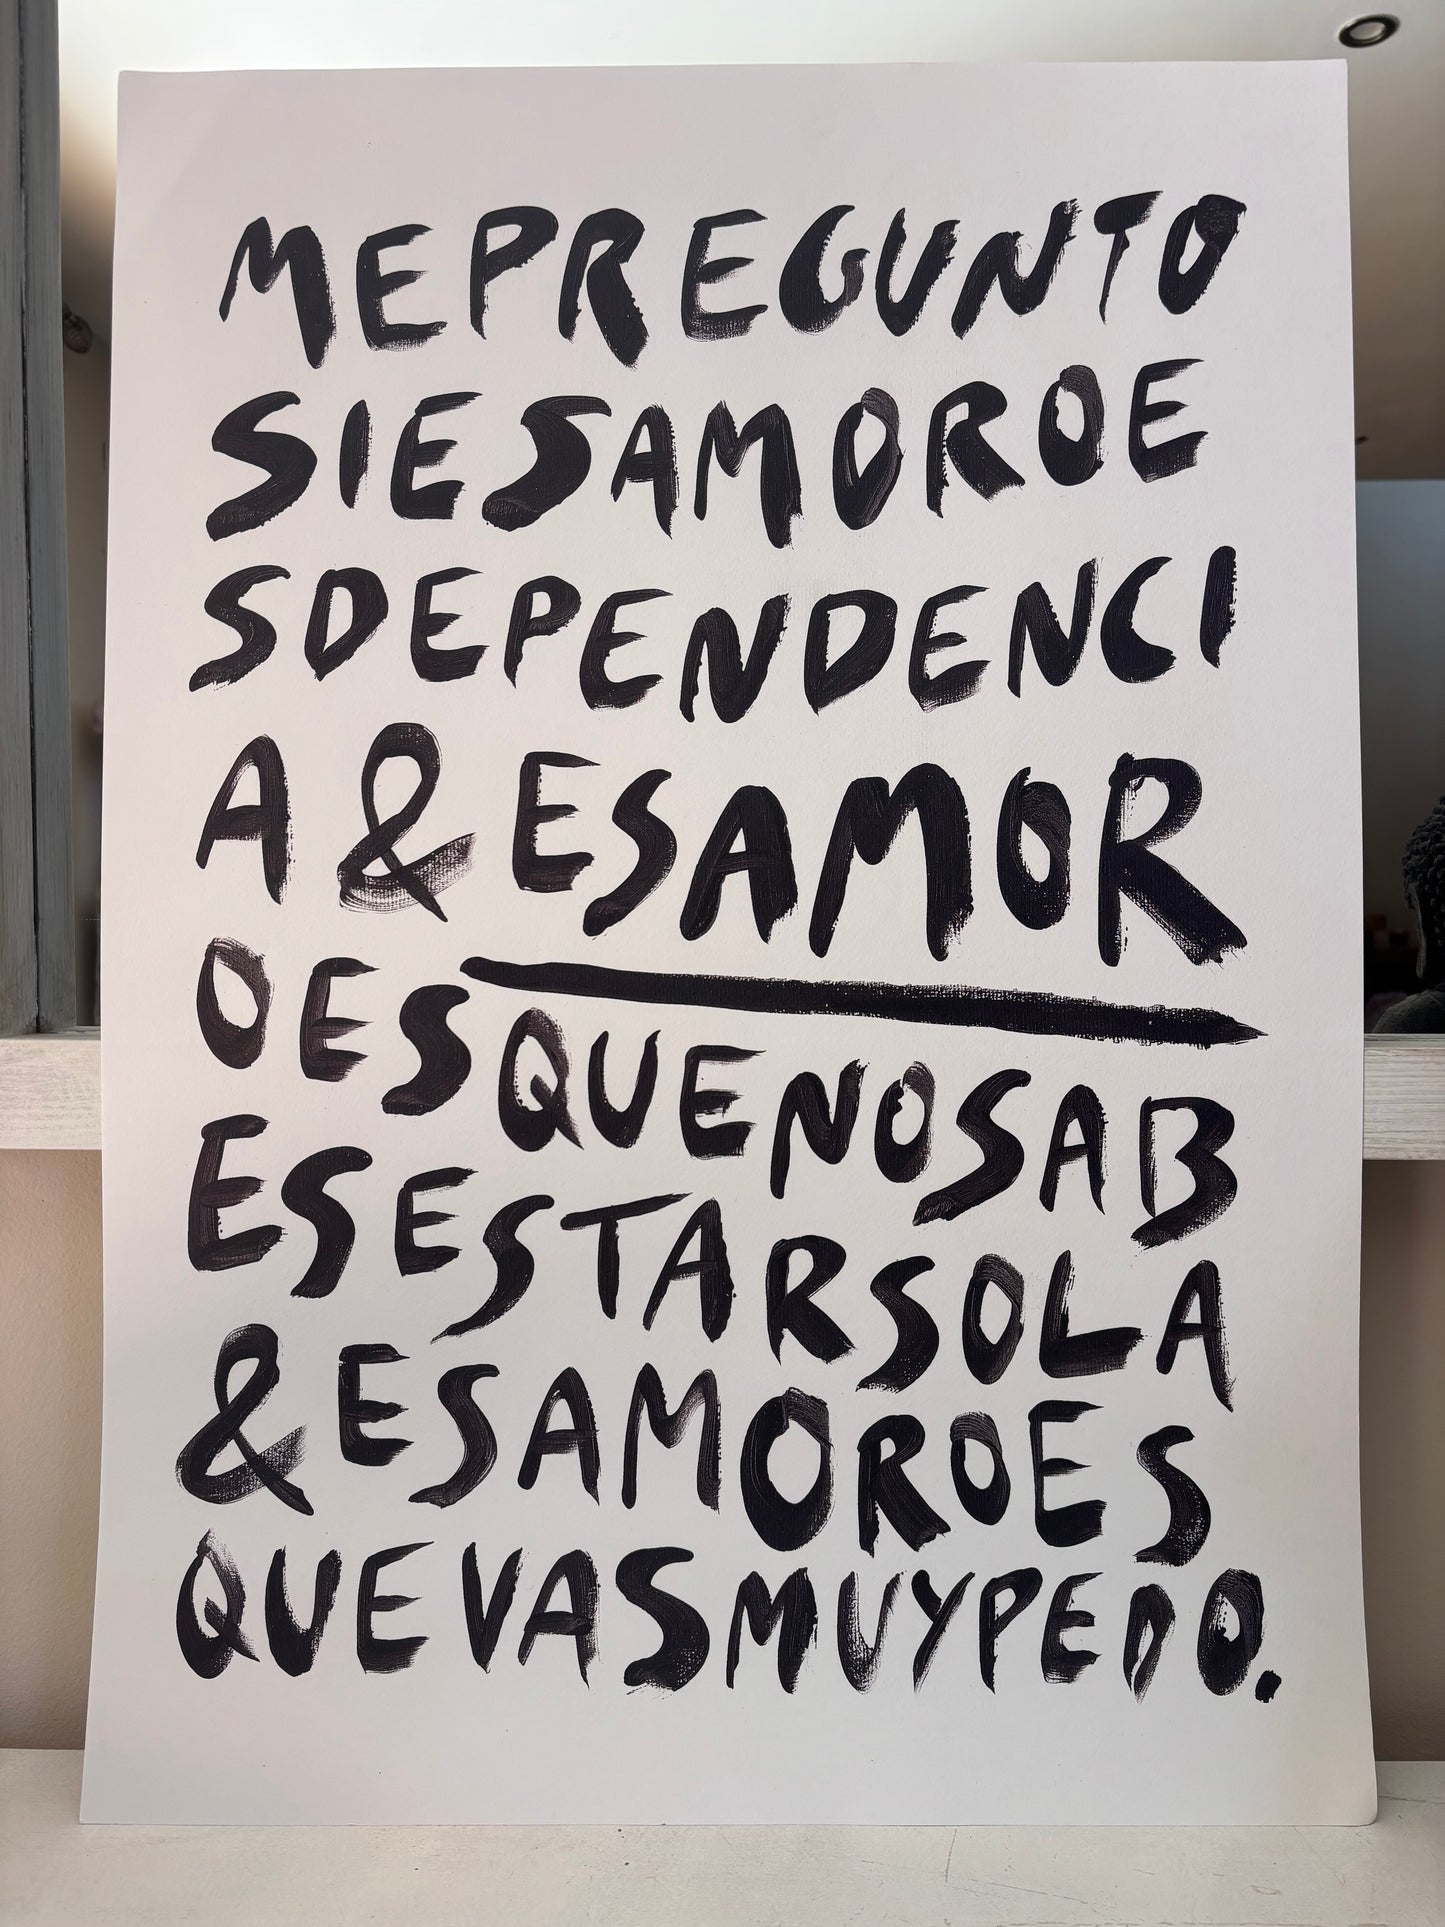 MEPREGUNTO
SIESAMOROE
SDEPENDENCI
A & ESAMOR
OESQUENOSAB
ESESTARSOLA
& ESAMOROES
QUEVASMUYPEDO.